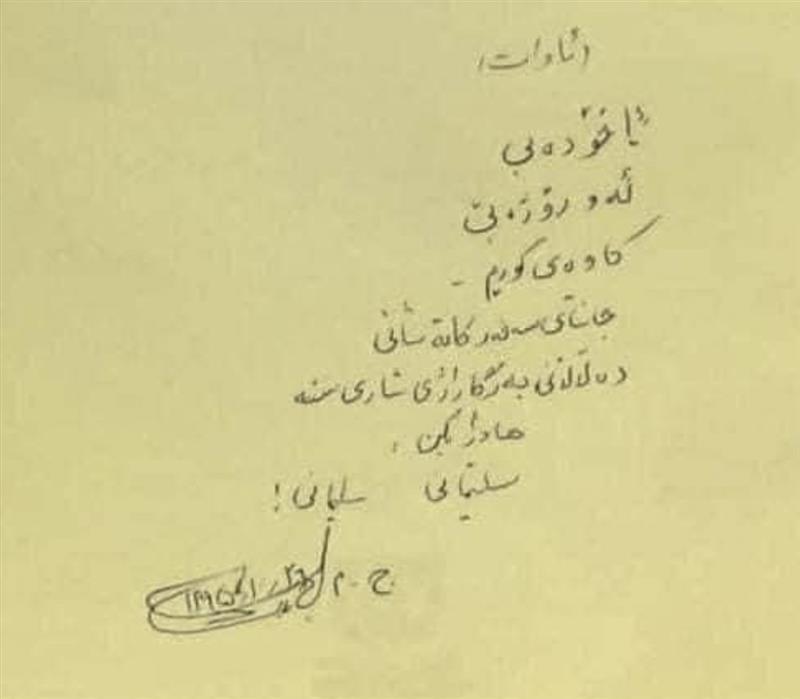 (ئاوات)
ئاخۆ دەبی
ئەو رۆژە بێ
کاوەی کوڕم -
جانتای سەفەر کاتە شانی
دەلالانی بەر گاراژی شاری سنە
هاوار بکەن:
سلێمانی سلێمانی!
ج. م